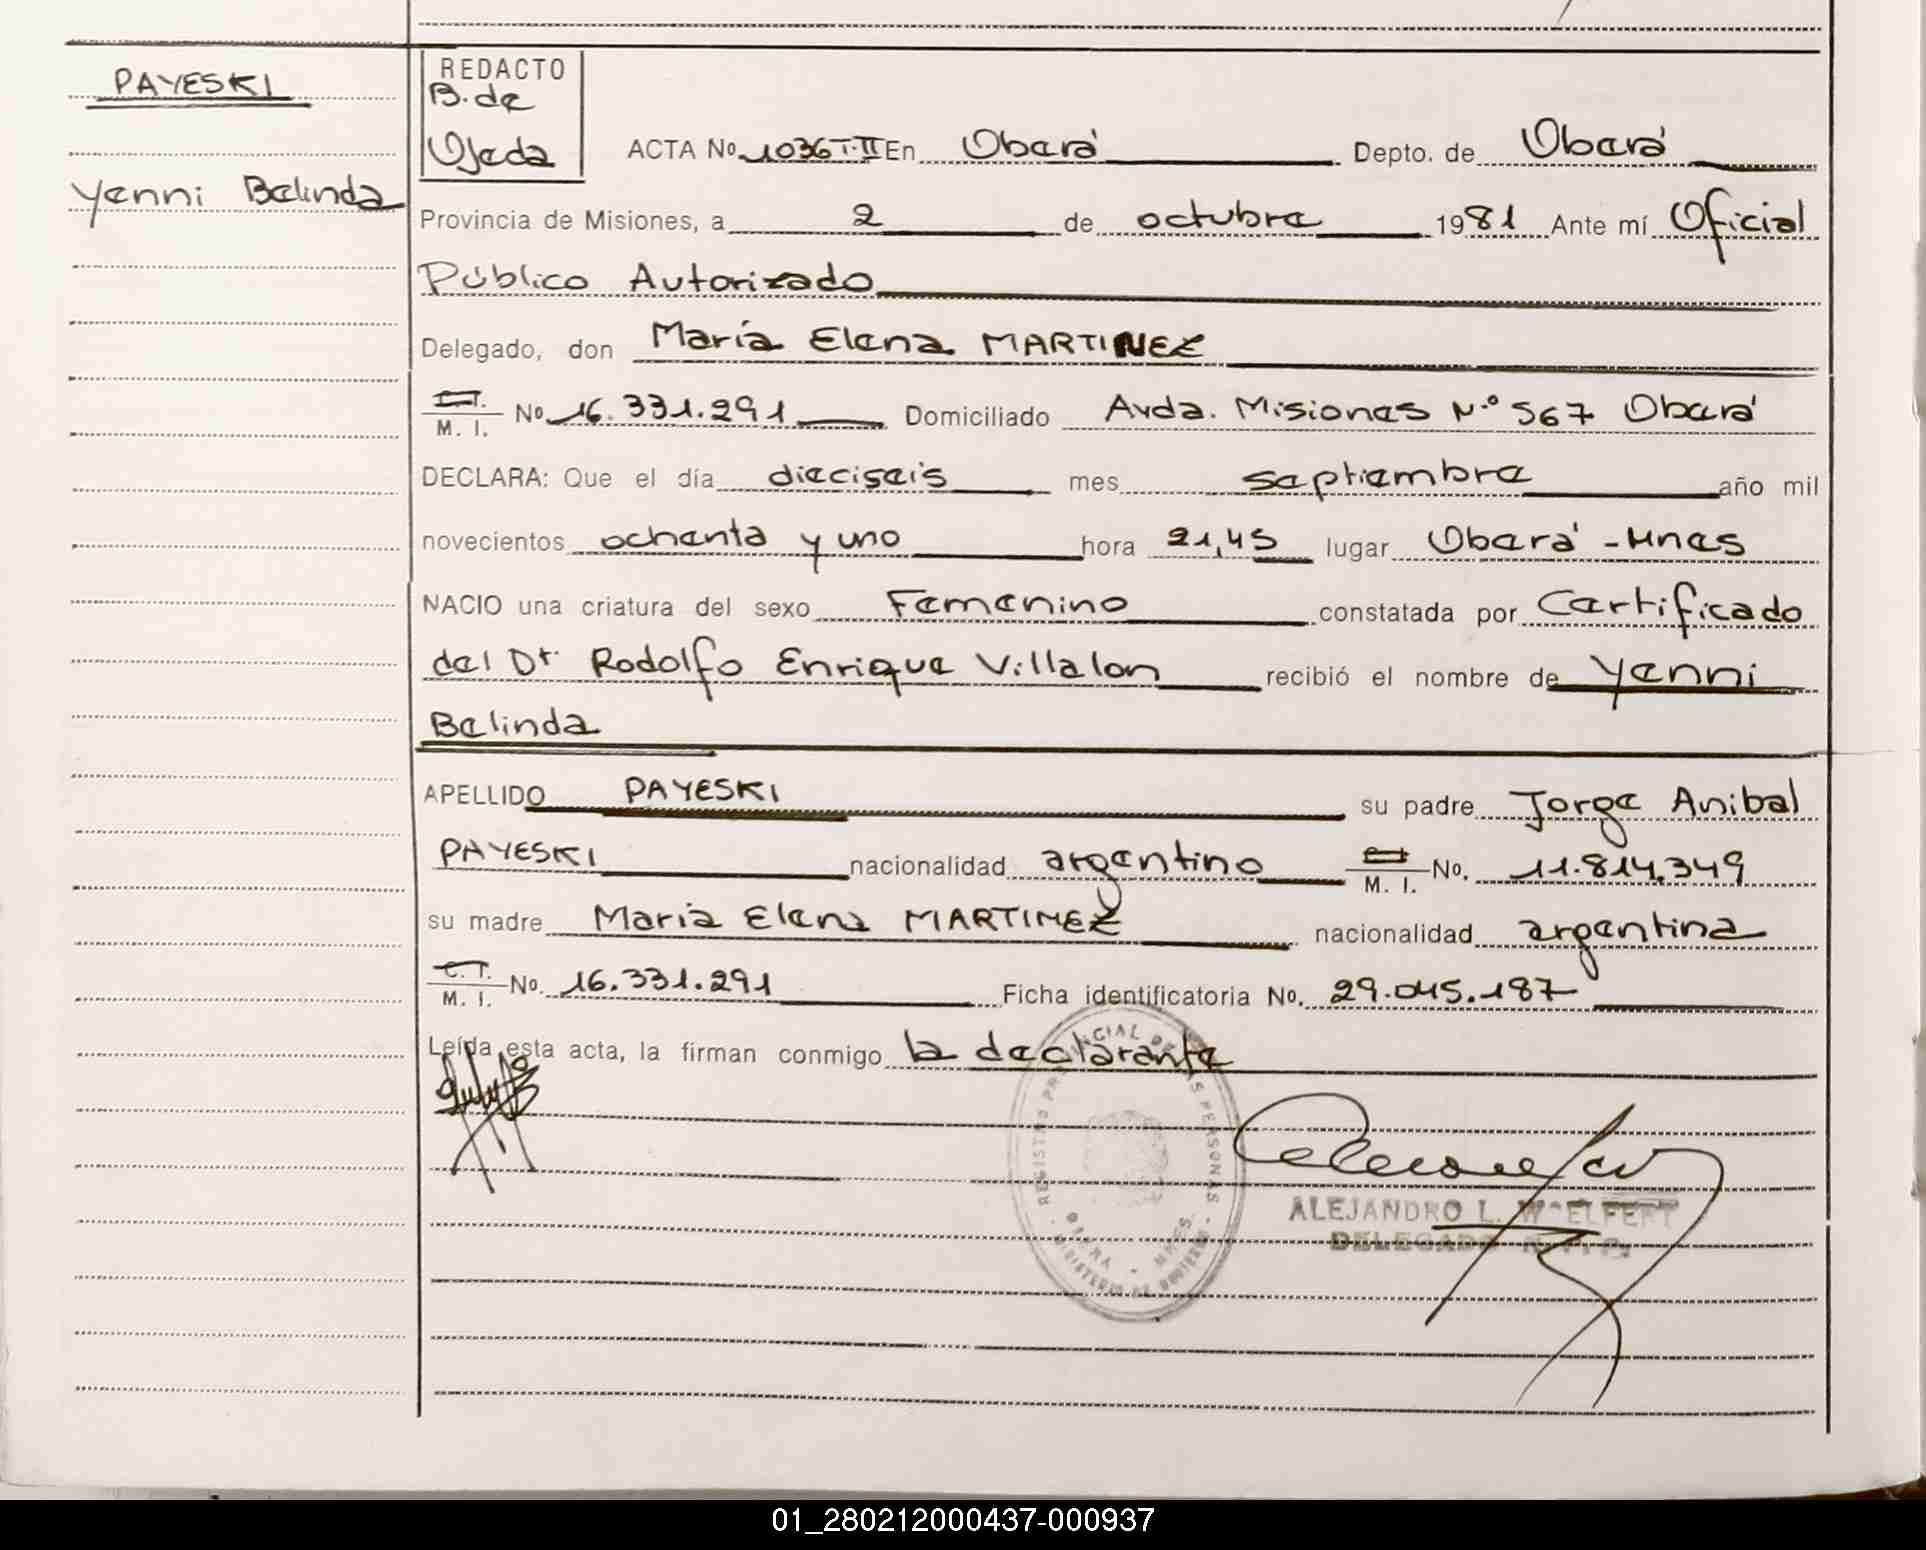 PAYESKI
Yenni Belinda
REDACTO
B. de
Ojeda
ACTA No 1036 T·II En Oberá Depto. de Oberá
Provincia de Misiones, a 2 de octubre 1981 Ante mí Oficial
Público Autorizado
Delegado, don María Elena MARTINEZ
C.I.
M. I. No 16.331.291 Domiciliado Avda. Misiones N.º 567 Oberá
DECLARA: Que el día dieciseis mes septiembre año mil
novecientos ochenta y uno hora 21,45 lugar Oberá - Mnes
NACIO una criatura del sexo Femenino constatada por Certificado
del Dr. Rodolfo Enrique Villalon recibió el nombre de Yenni
Belinda
APELLIDO PAYESKI su padre Jorge Anibal
PAYESKI nacionalidad argentino M. I. No. 11.814.349
su madre Maria Elena MARTINEZ nacionalidad argentina
C. I.
M. I. No. 16.331.291 Ficha identificatoria No. 29.045.187
Leída esta acta, la firman conmigo la declarante
REGISTRO PROVINCIAL DE LAS PERSONAS
OBERA - MNES.
MINISTERIO DE GOBIERNO
ALEJANDRO L. WOELFERT
DELEGADO R.P.P.
01_280212000437-000937